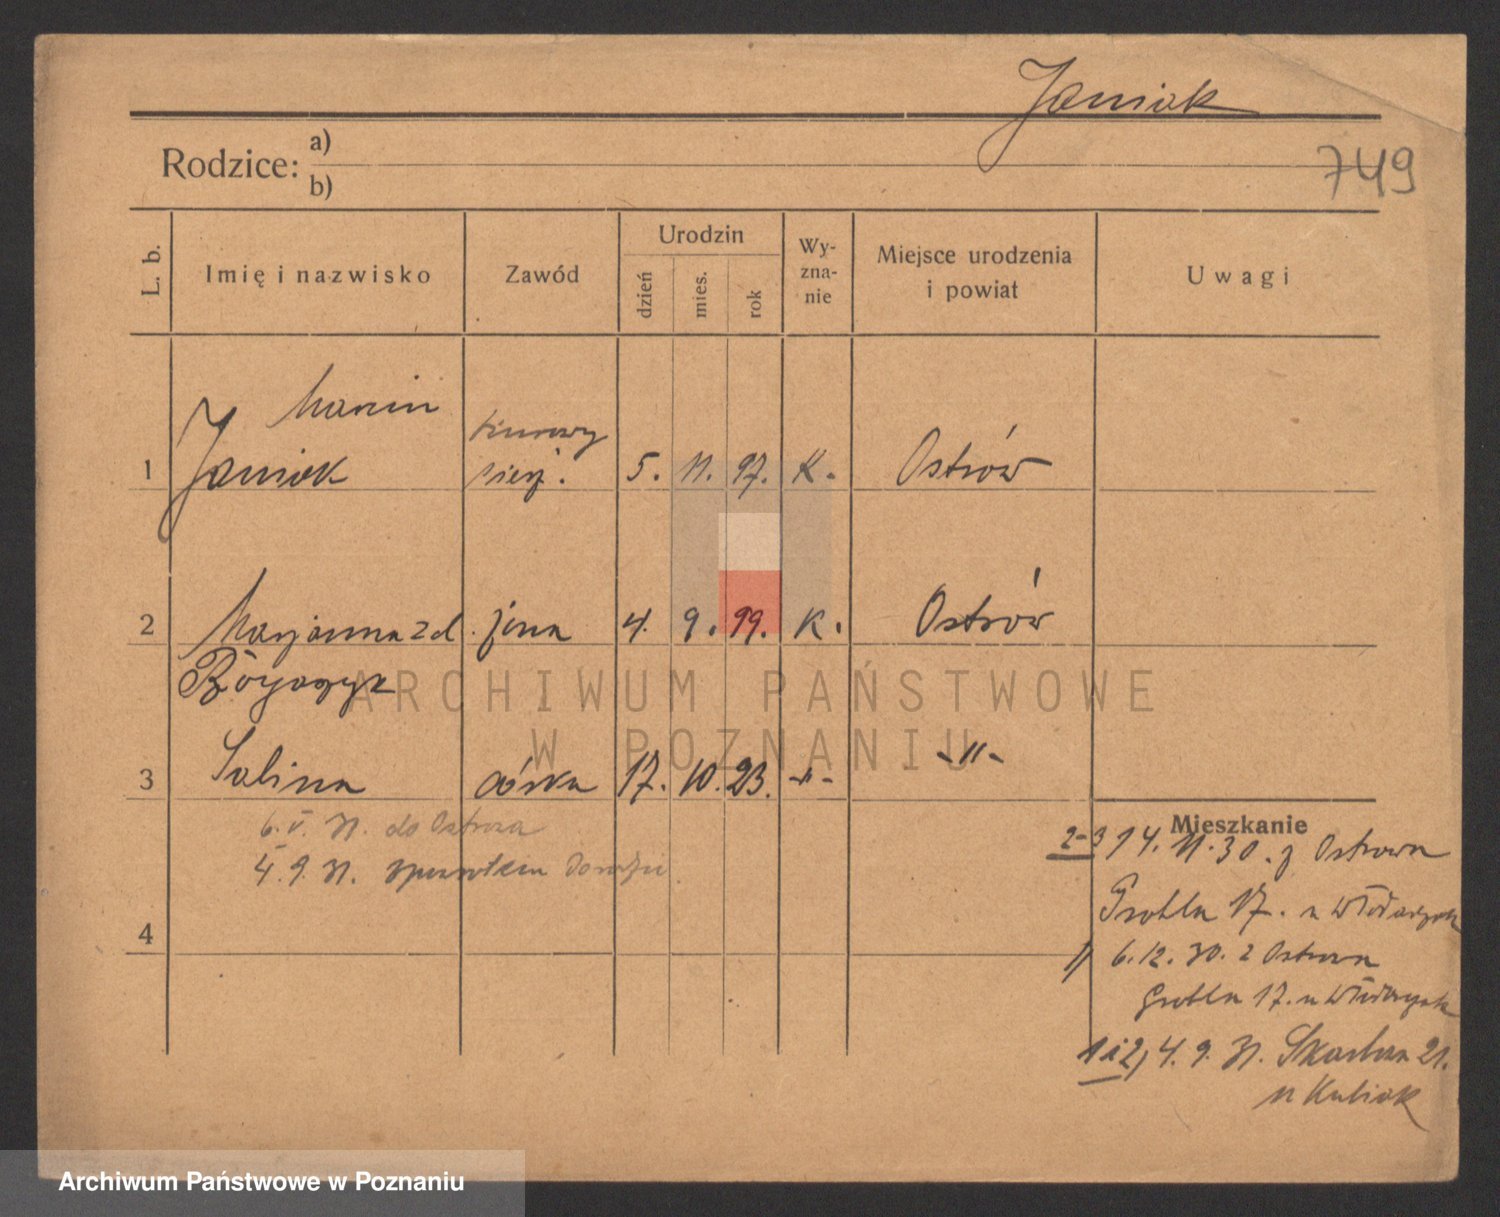 Janiak
Rodzice: a)
b)
749
L. b.
Imię i nazwisko
Zawód
Urodzin
dzień
mies.
rok
Wy-
zna-
nie
Miejsce urodzenia
i powiat
Uwagi
Marcin
1 Janiak sierż. 5. 11. 97. K. Ostrów
2 Marjanna z d. żona 4. 9. 99. K. Ostrów
3 córka 17. 10. 23. -"- -"-
6. V. 31. do Ostrowa
4. 9. 31. z powrotem
4
Mieszkanie
2-3 14. 11. 30. z Ostrowa
Grobla 17. u
1) 6. 12. 30. z Ostrowa
Grobla 17. u
1 i 2) 4. 9. 31. Skarbowa 21.
u Kubiak
ARCHIWUM PAŃSTWOWE
W POZNANIU
Archiwum Państwowe w Poznaniu